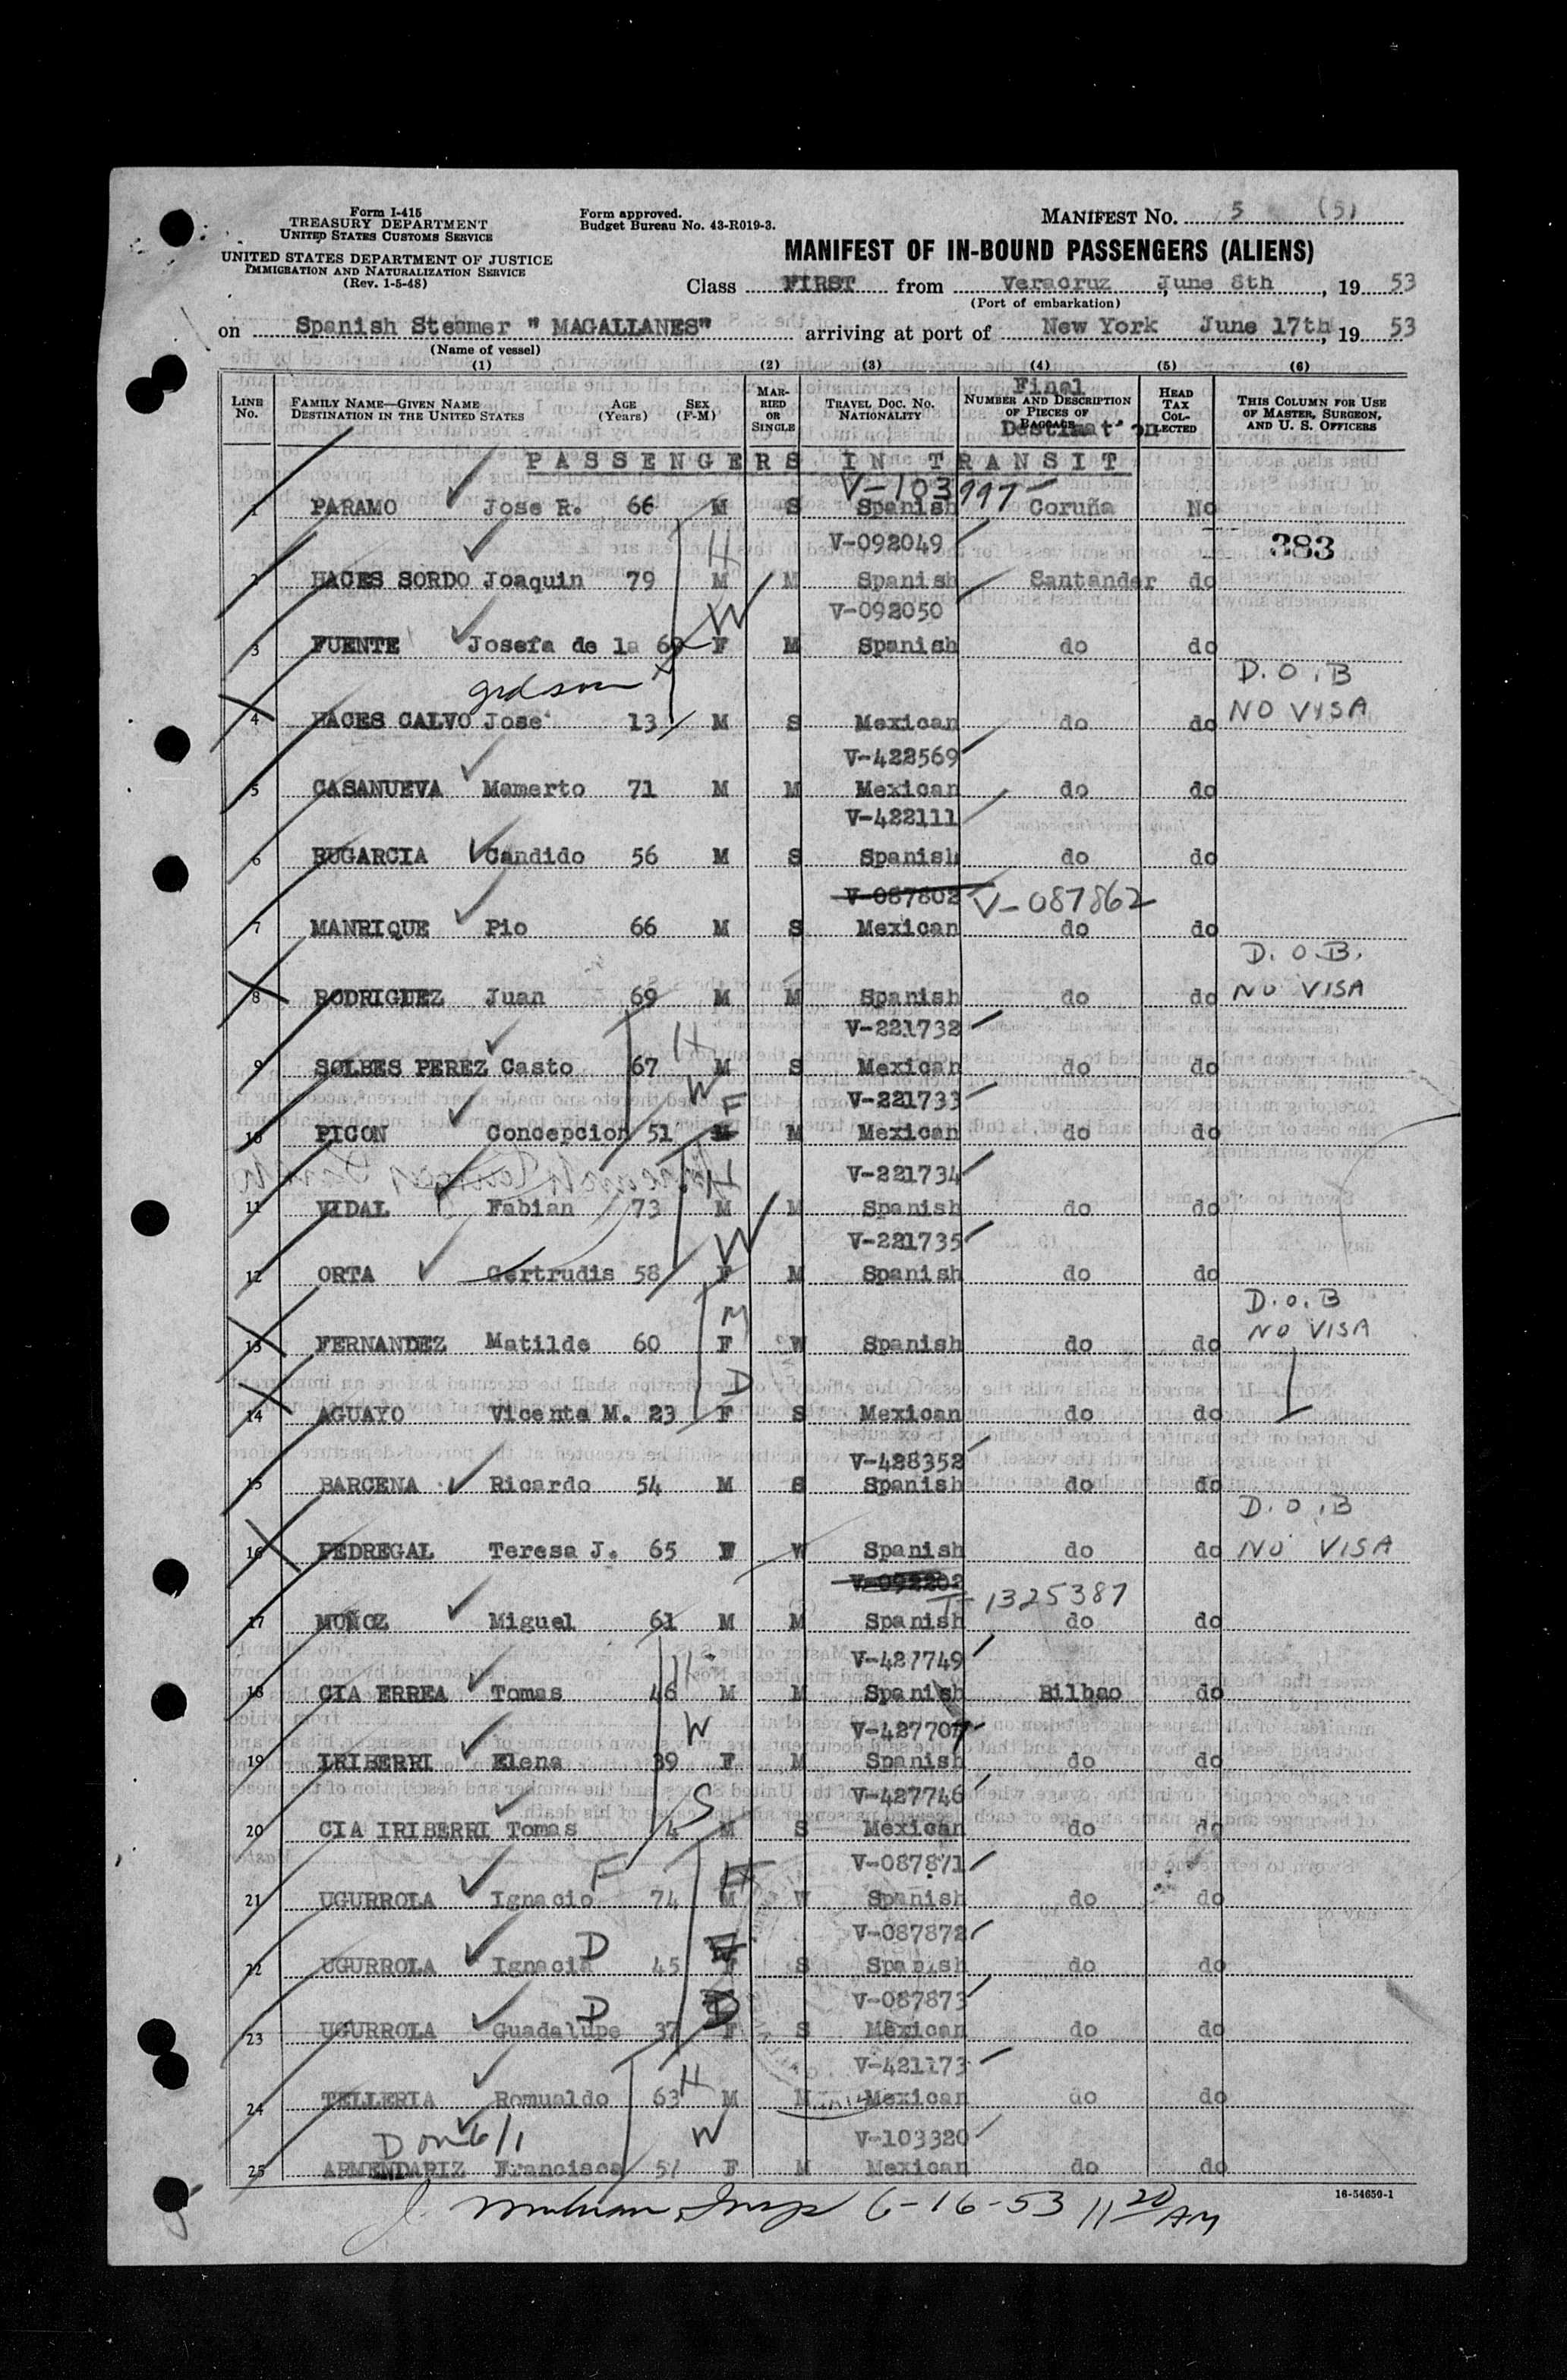 Form I-415
TREASURY DEPARTMENT
UNITED STATES CUSTOMS SERVICE
UNITED STATES DEPARTMENT OF JUSTICE
IMMIGRATION AND NATURALIZATION SERVICE
(Rev. 1-5-48)
Form approved.
Budget Bureau No. 43-R019-3.
MANIFEST NO. 5 (5)
MANIFEST OF IN-BOUND PASSENGERS (ALIENS)
Class FIRST from Veracruz, June 8th, 19 53
(Port of embarkation)
on Spanish Steamer " MAGALLANES" arriving at port of New York June 17th, 19 53
(Name of vessel)
(1) (2) (3) (4) (5) (6)
LINE No.
FAMILY NAME—GIVEN NAME
DESTINATION IN THE UNITED STATES
AGE (Years)
SEX (F-M)
MARRIED OR SINGLE
TRAVEL DOC. NO. NATIONALITY
Final
NUMBER AND DESCRIPTION OF PIECES OF BAGGAGE
Destinat on
HEAD TAX COLLECTED
THIS COLUMN FOR USE OF MASTER, SURGEON, AND U. S. OFFICERS
PASSENGERS IN TRANSIT
V-103997
1 PARAMO Jose R. 66 M S Spanish Coruña No
H V-092049 383
2 HACES SORDO Joaquin 79 M M Spanish Santander do
W V-092050
3 FUENTE Josefa de la F M Spanish do do
grdson D.O.B
4 HACES CALVO Jose 13 M S Mexican do do NO VISA
V-422569
5 CASANUEVA Mamerto 71 M M Mexican do do
V-422111
6 RUGARCIA Candido 56 M S Spanish do do
V-087802 V-087862
7 MANRIQUE Pio 66 M S Mexican do do
D.O.B.
8 RODRIGUEZ Juan 69 M M Spanish do do NO VISA
H V-221732
9 SOLBES PEREZ Casto 67 M S Mexican do do
W F V-221733
10 PICON Concepcion 51 M M Mexican do do
H V-221734
11 VIDAL Fabian 73 M M Spanish do do
W V-221735
12 ORTA Gertrudis 58 F M Spanish do do
M D.O.B
NO VISA
13 FERNANDEZ Matilde 60 F W Spanish do do
D
14 AGUAYO Vicenta M. 23 F S Mexican do do
V-428352
15 BARCENA Ricardo 54 M S Spanish do do
D.O.B
16 PEDREGAL Teresa J. 65 F W Spanish do do NO VISA
V-092202 1325387
17 MUÑOZ Miguel 61 M M Spanish do do
H V-427749
18 CIA ERREA Tomas 46 M M Spanish Bilbao do
W
19 IRIBERRI Elena 39 F M Spanish do do
S V-427746
20 CIA IRIBERRI Tomas 4 M S Mexican do do
F V-087871
21 UGURROLA Ignacio 74 M W Spanish do do
D V-087872
22 UGURROLA Ignacia 45 F S Spanish do do
D D V-087873
23 UGURROLA Guadalupe 37 F S Mexican do do
H V-421173
24 TELLERIA Romualdo 63 M M Mexican do do
D on 6/1 W V-103320
25 ARMENDARIZ Francisca 57 F M Mexican do do
16-54650-1
J. Insp 6-16-53 11 20 AM